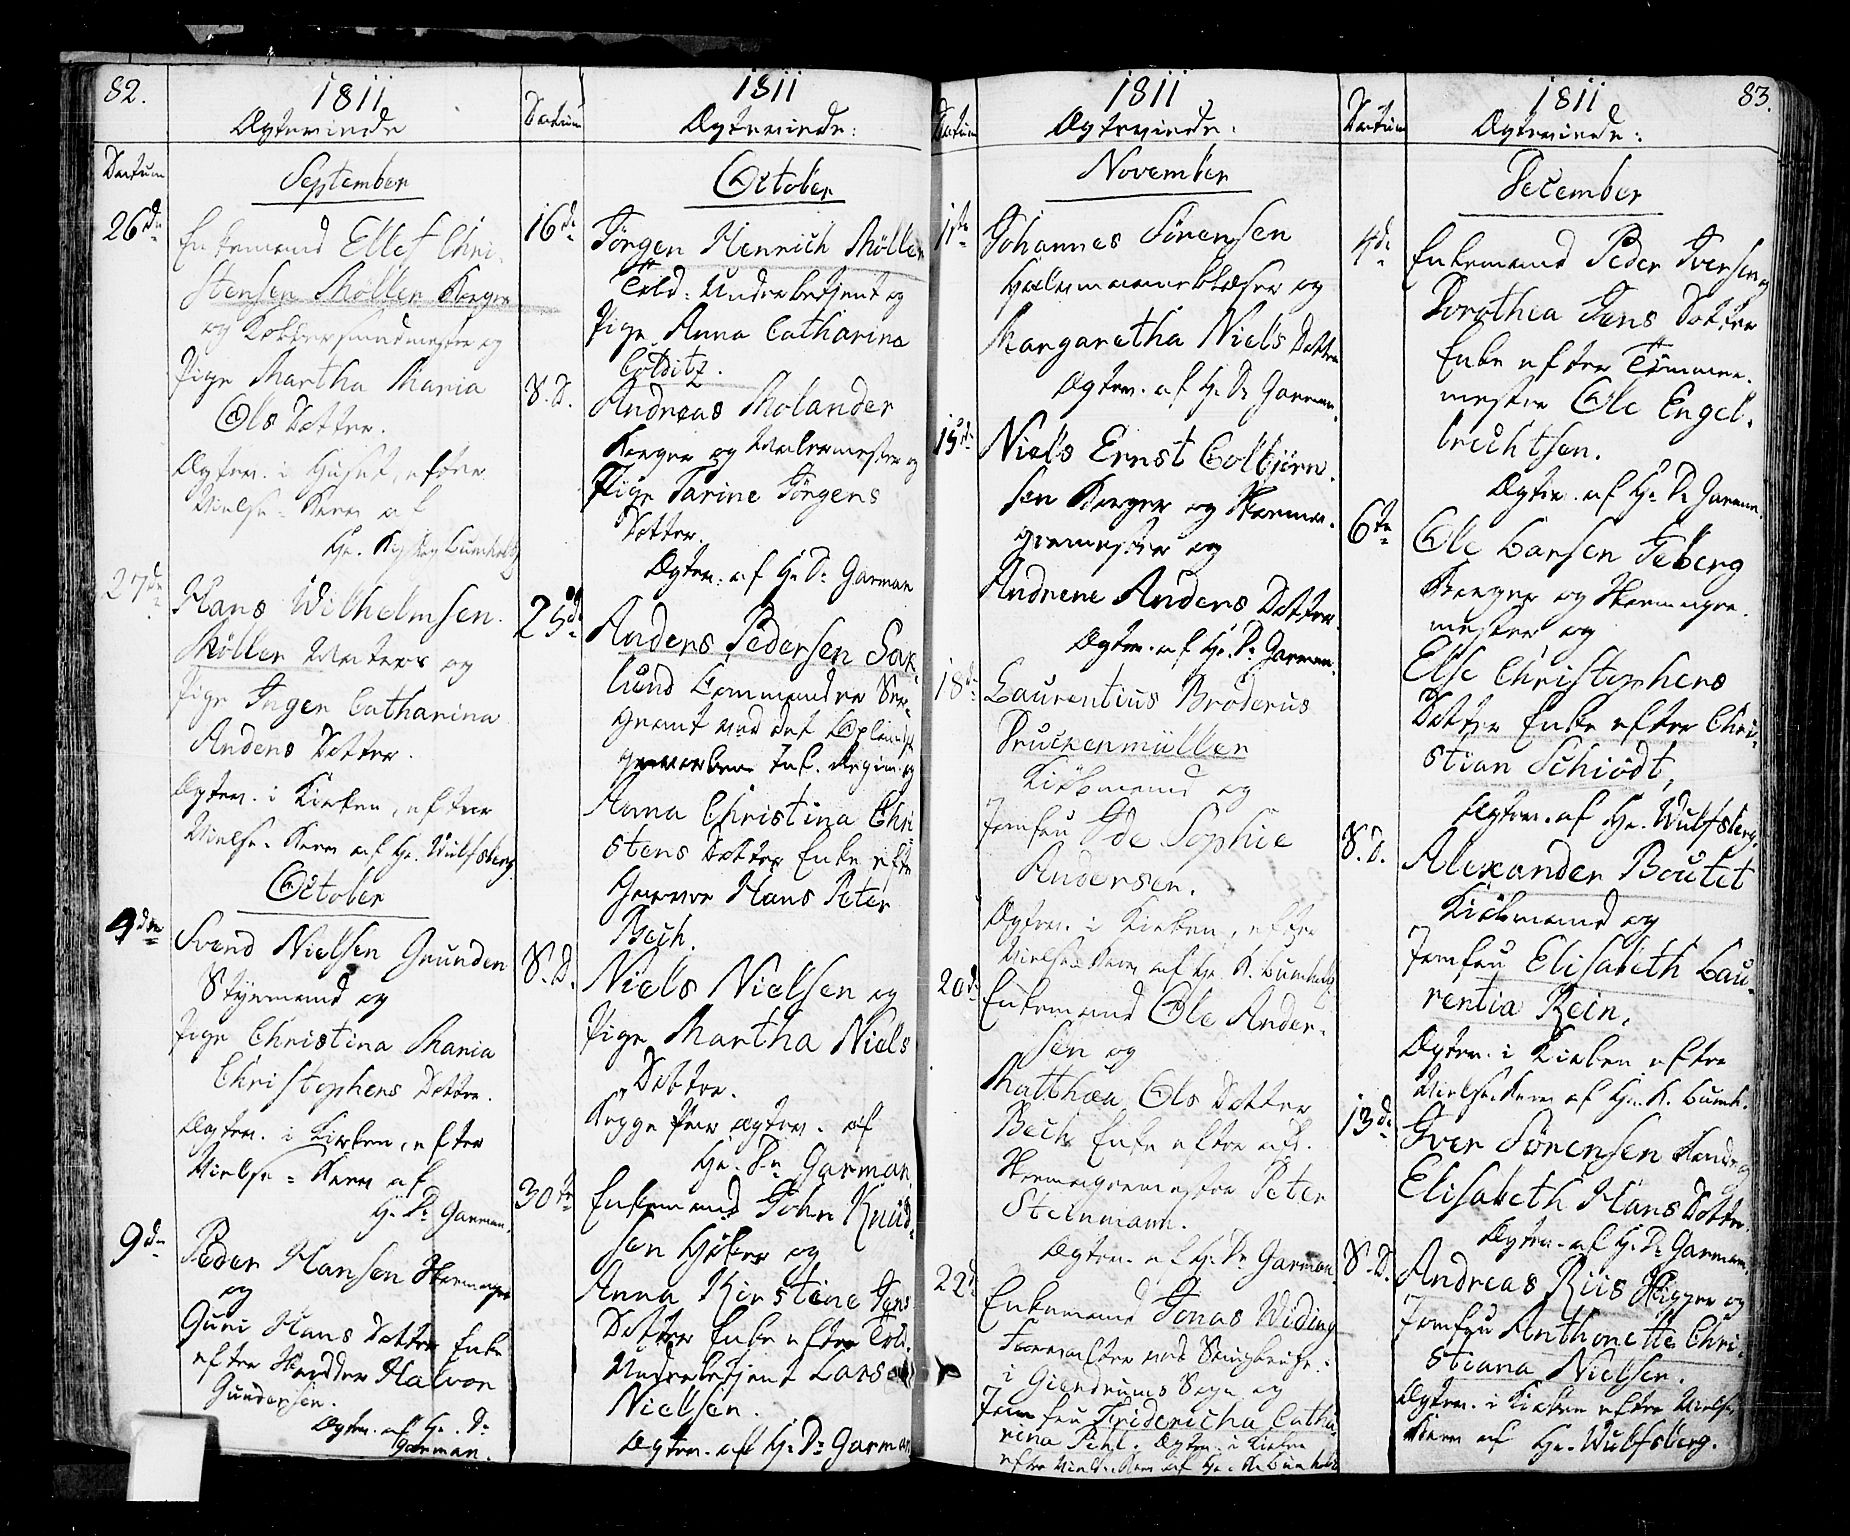 82.
1811
Ægteviede
Datum
September
26de
Enkemand Ellef Chri-
stensen Møller Borger
og Kobbersmedmester og
Pige Martha Maria
Ols Datter.
Ægtev. i Huset, efter
Vielse-Brev af
Hr. Bumholtz
27de
Hans Wilhelmsen
Møller Matros og
Pige Inger Catharina
Anders Datter.
Ægtev. i Kirken, efter
Vielse-Brev af Hr. Wulfsberg
October
4den
Svend Nielsen Grunden
Styrmand og
Pige Christina Maria
Christophers Datter.
Ægtev. i Kirken, efter
Vielse-Brev af
H. Dr. Garman.
9de
Peder Hansen
og
Guri Hans Datter Enke
efter Halvor
Gundersen.
Ægtev. af Hr. Dr.
Garman.
Datum
1811
Ægteviede:
October
16de
Jørgen Henrich Møller
Told-Underbetjent og
Pige Anna Catharina
Colditz.
S. D.
Andreas Molander
Borger og Malermester og
Pige Tarine Jørgens
Datter.
Ægtev. af Hr. Dr. Garman
25de
Anders Pedersen Sax-
lund Commandeer Ser-
geant ved det Oplandsk
gevorben Inf. Regim. og
Anna Christina Chri
stens Datter Enke efter
Hans Peter
Bech.
S. D.
Niels Nielsen og
Pige Martha Niels
Datter.
Begge Par ægtev. af
Hr. Dr. Garman.
30te
Enkemand John Knud-
sen Høker og
Anna Kirstine Jens
Datter Enke efter Told
Underbetjent Lars
Nielsen.
Ægtev. af H. Dr. Garman
Datum
1811
Ægteviede:
November
11te
Johannes Sørensen
og
Margaretha Niels Datter
Ægtev. af H. Dr. Garman.
15de
Niels Ernst Colbjørn-
sen Borger og Skoma-
germester og
Andrene Anders Datter.
Ægtev. af Hr. Dr. Garman.
18de
Laurentius Broderus
Druckenmüller
Kiøbmand og
Jomfru Ide Sophie
Andersen.
Ægtev. i Kirken, efter
Vielse-Brev af Hr. K. Bumholtz.
20de
Enkemand Ole Ander-
sen og
Matthea Ols Datter
Bech Enke efter afd.
Skomagermester Peter
Steinmann.
Ægtev. af H. Dr. Garman.
22de
Enkemand Jonas Widing
i Giendrums Sogn og
Jomfru Fridericha Catha-
rina Pihl. Ægtev. i Kirken
efter Vielse-Brev af Hr. K. Bumholtz
Datum
1811
83.
Ægteviede:
December
4de
Enkemand Peder Iversen og
Dorothea Jens Datter
Enke efter Tømmer-
mester Ole Engel-
brechtsen.
Ægtev. af H. Dr. Garman.
6te
Ole Larsen Teberg
Borger og Skomager-
mester og
Else Christophers
Datter Enke efter Chri-
stian Schiødt,
Ægtev. af Hr. Wulfsberg.
S. D.
Alexander Boutet
Kiøbmand og
Jomfru Elisabeth Lau-
rentia Rein,
Ægtev. i Kirken efter
Vielse-Brev af Hr. K. Bumh.
13de
Iver Sørensen og
Elisabeth Hans Datter.
Ægtev. af H. Dr. Garman.
S. D.
Andreas Riis Skipper og
Jomfru Anthonette Chri-
stiana Nielsen.
Ægtev. i Kirken efter Vielse
Brev af Hr. Wulfsberg.